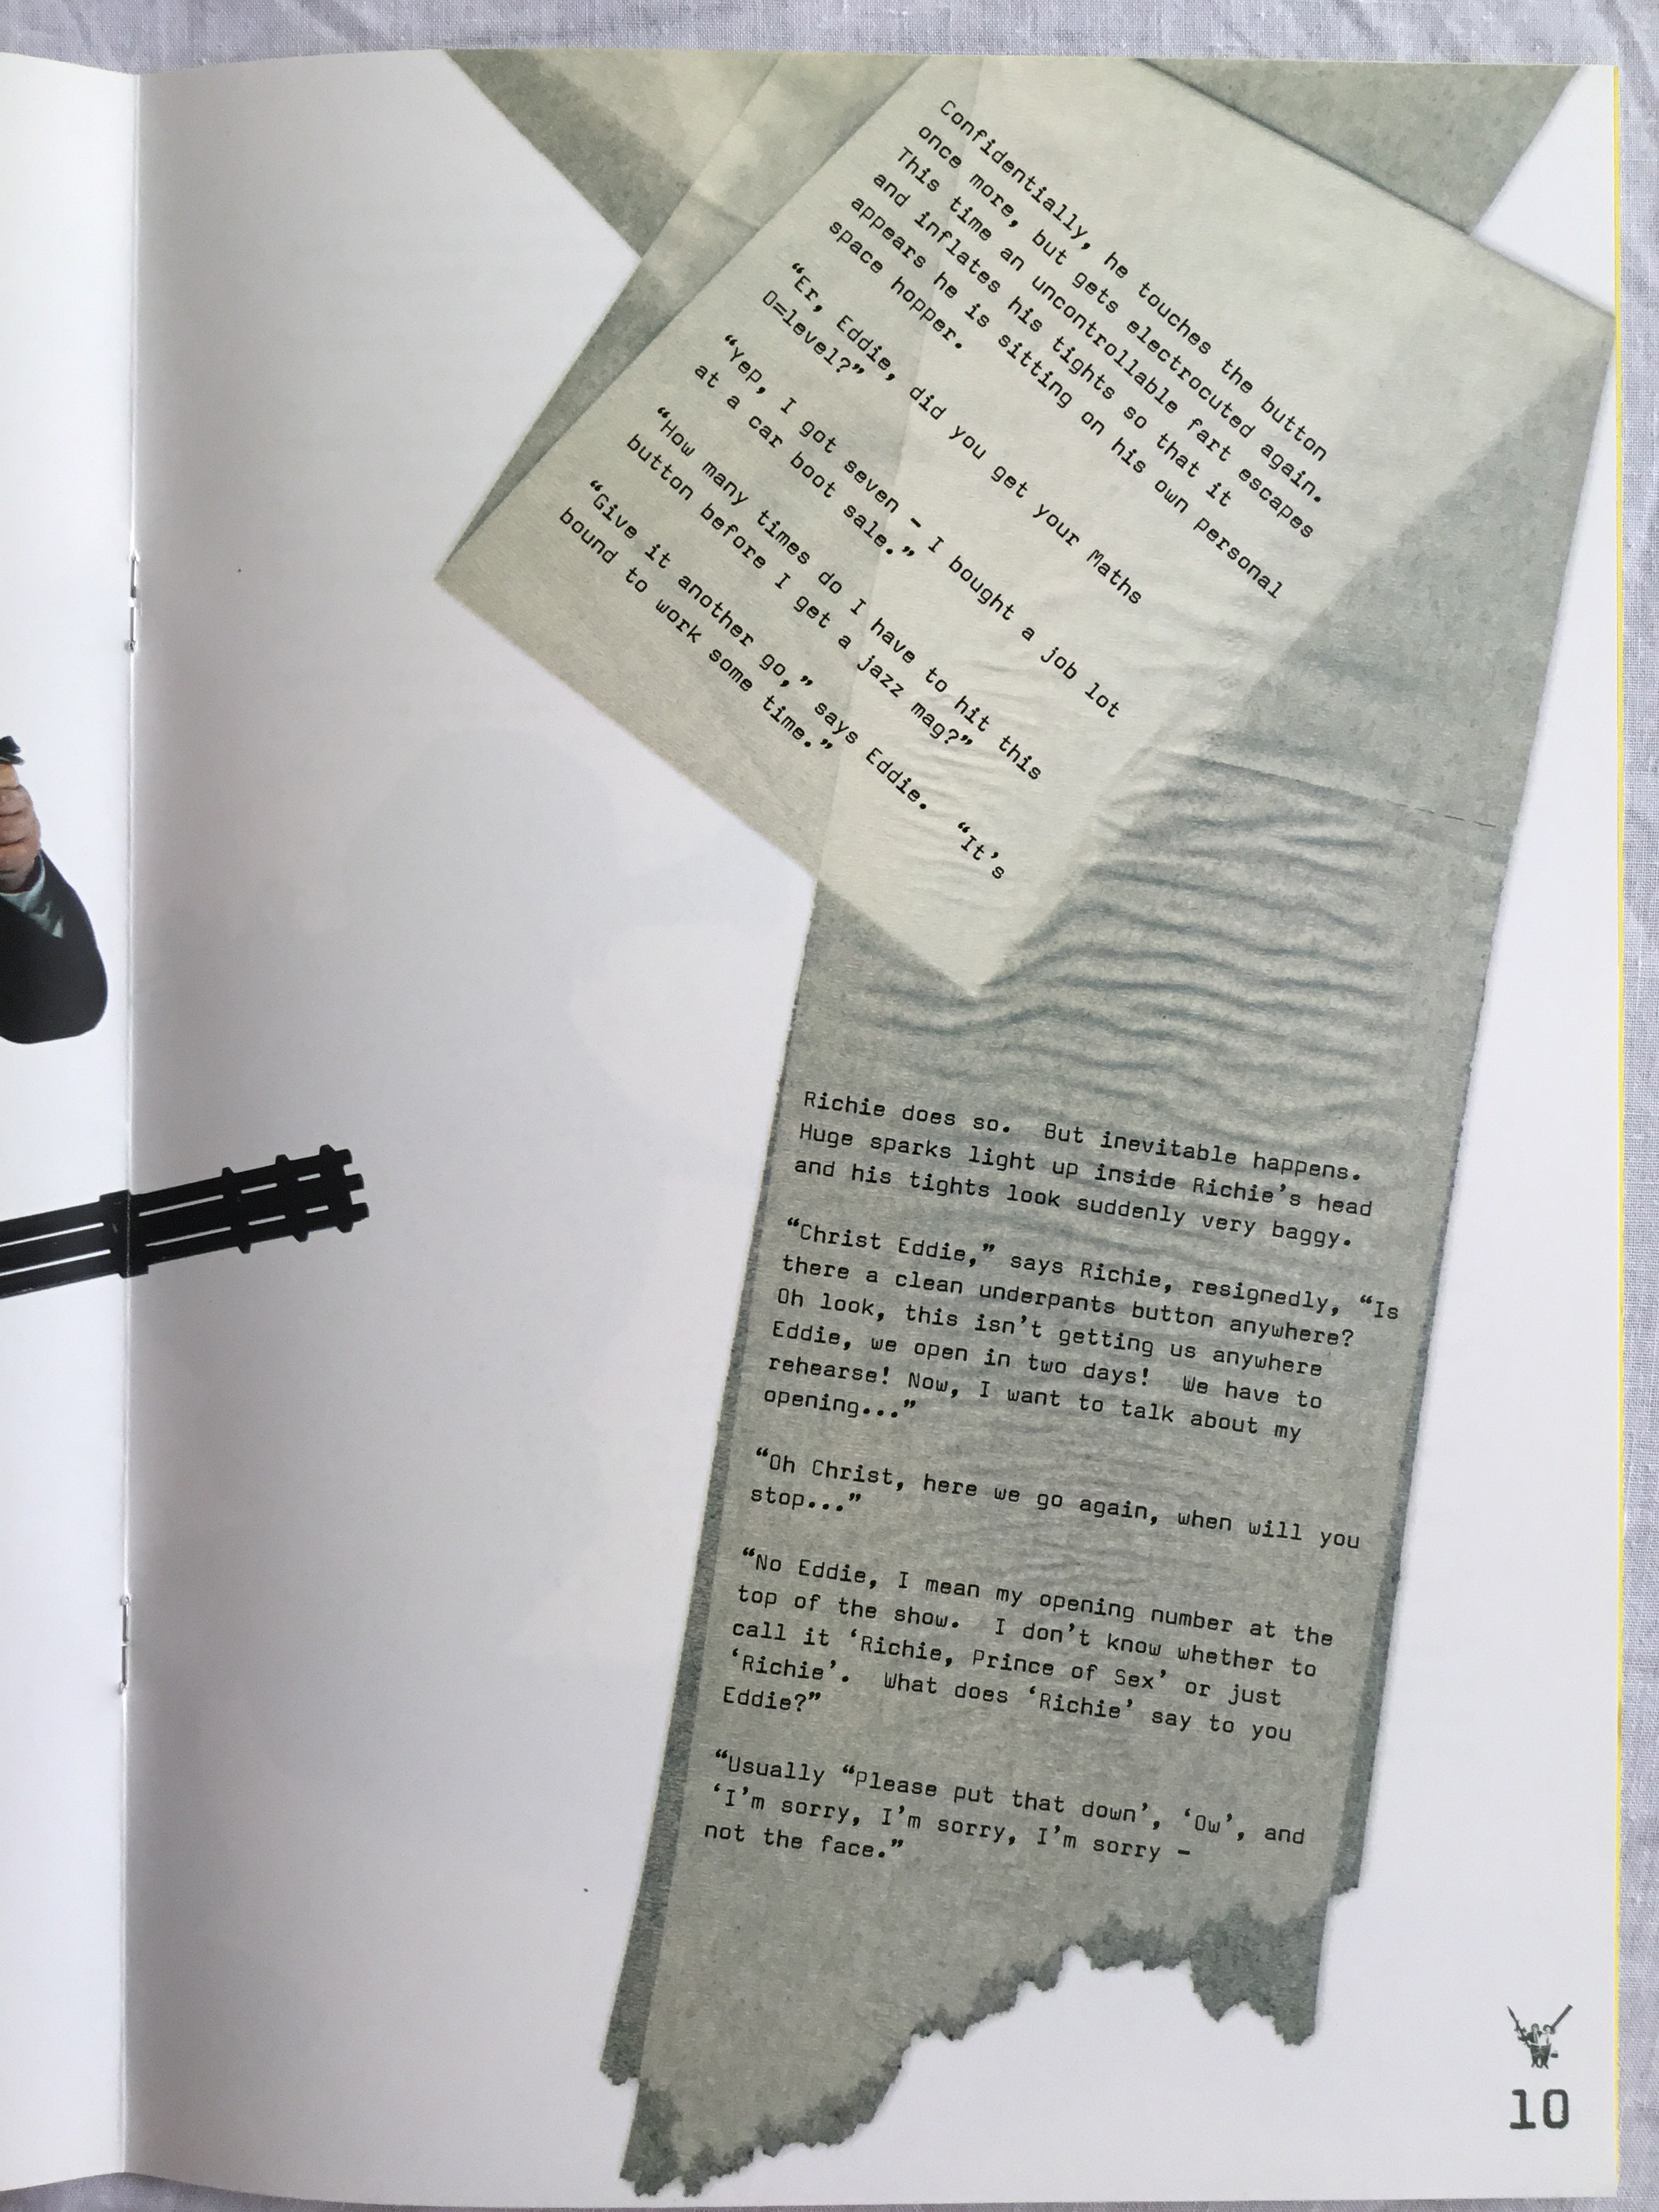 Confidentially, he touches the button
once more, but gets electrocuted again.
This time an uncontrollable fart escapes
and inflates his tights so that it
appears he is sitting on his own personal
space hopper.
“Er, Eddie, did you get your Maths
O=level?”
“Yep, I got seven – I bought a job lot
at a car boot sale.”
“How many times do I have to hit this
button before I get a jazz mag?”
“Give it another go,” says Eddie. “It’s
bound to work some time.”
Richie does so. But inevitable happens.
Huge sparks light up inside Richie’s head
and his tights look suddenly very baggy.
“Christ Eddie,” says Richie, resignedly, “Is
there a clean underpants button anywhere?
Oh look, this isn’t getting us anywhere
Eddie, we open in two days! We have to
rehearse! Now, I want to talk about my
opening...”
“Oh Christ, here we go again, when will you
stop...”
“No Eddie, I mean my opening number at the
top of the show. I don’t know whether to
call it ‘Richie, Prince of Sex’ or just
‘Richie’. What does ‘Richie’ say to you
Eddie?”
“Usually “Please put that down’, ‘Ow’, and
‘I’m sorry, I’m sorry, I’m sorry –
not the face.”
10